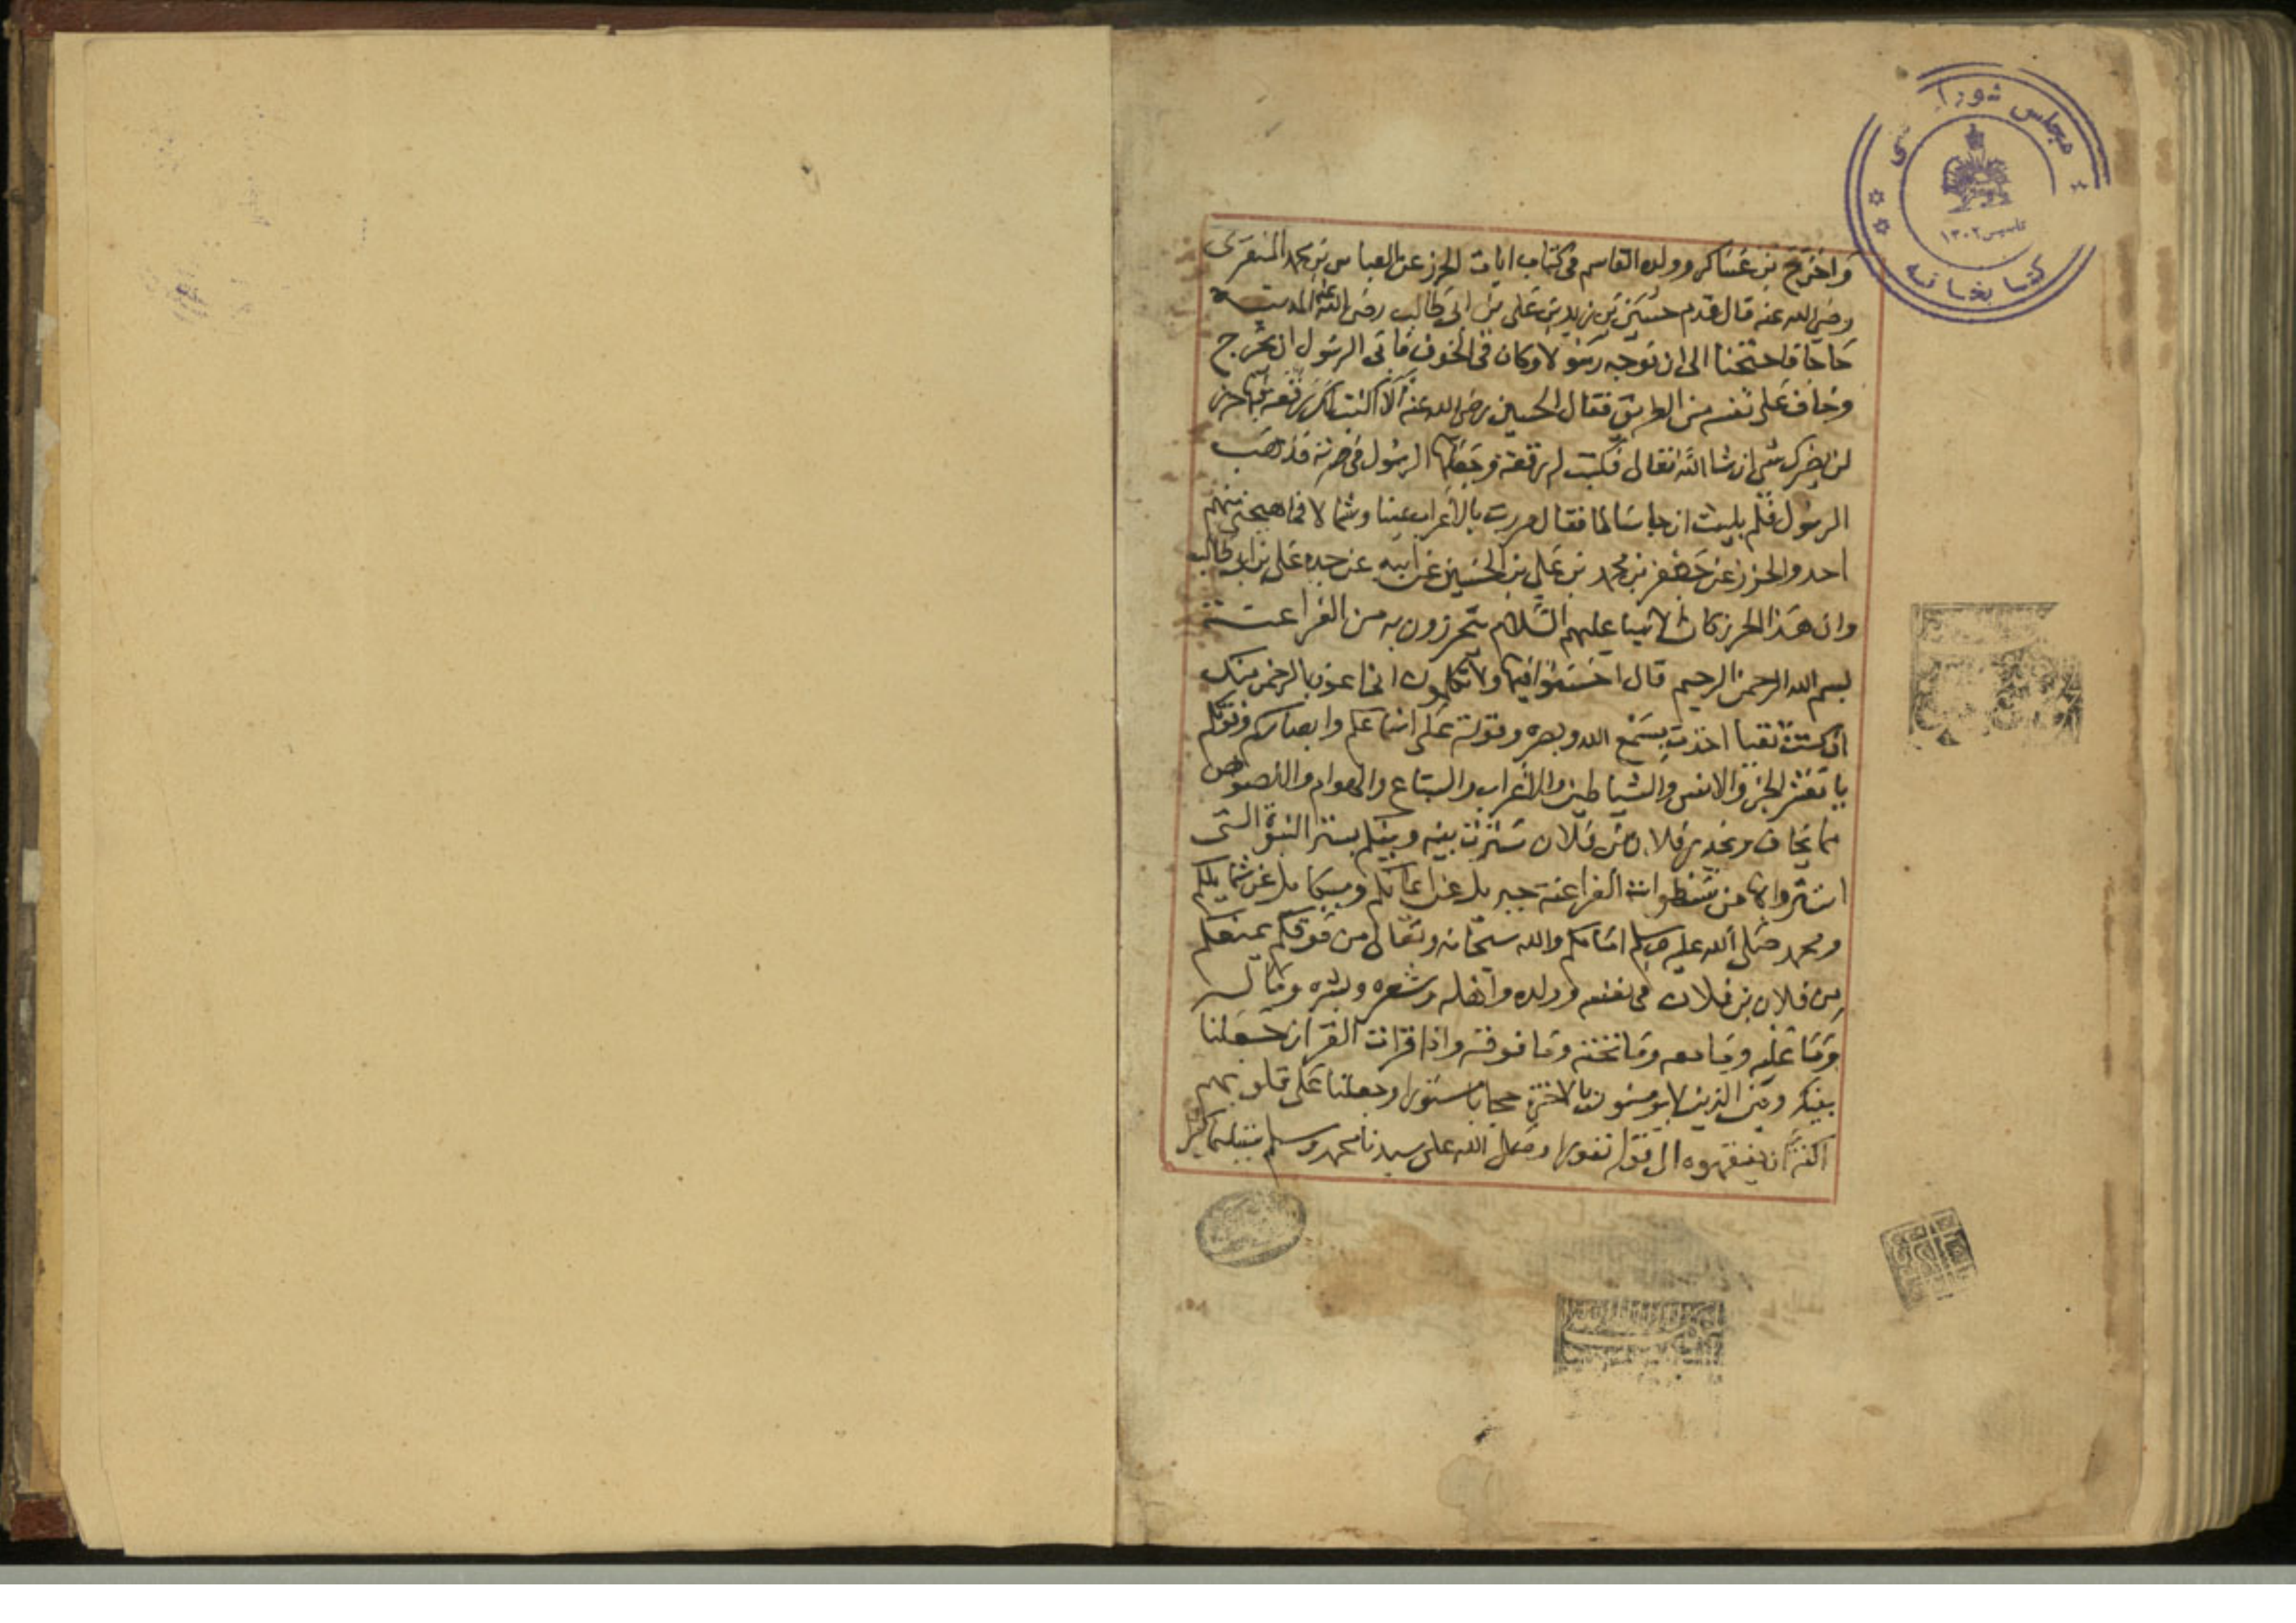 مجلس شورا ى
تاسیس ۱۳۰۲
کتابخانه
واخرج بن عساكر وولده القاسم فى كتاب ايات الحرز عن العباس بن محمد المنقرى
رضى الله عنه قال قدم حسين بن زيد بن على بن ابى طالب رضى الله عنه المدينة
حاجا فاحتجنا الى ان نوجه رسولا وكان فى الخوف فابى الرسول ان يخرج
وخاف على نفسه من الطريق فقال الحسين رضى الله عنه انا اكتب لك رقعة فيها حرز
لن يضرك شى ان شا الله تعالى فكتب له رقعة وجعلها الرسول فى صرته فذهب
الرسول فلم يلبث ان جا سالما فقال مررت بالاعراب يمينا وشمالا فما هيجنى منهم
احد والحرز عن جعفر بن محمد بن على بن الحسين عن ابيه عن جده على بن ابى طالب
وان هذا الحرز كان الانبيا عليهم السلام يتحرزون به من الفراعنة
بسم الله الرحمن الرحيم قال اخسئوا فيها ولا تكلمون انى اعوذ بالرحمن منك
ان كنت تقيا اخذت بسمع الله وبصره وقوته على اسماعكم وابصاركم وقوتكم
يا معشر الجن والانس والشياطين والاعراب والسباع والهوام واللصوص
مما يخاف ويحذر فلان بن فلان سترت بينه وبينكم بستر النبوة التى
استتروا بها من سطوات الفراعنة جبريل عن ايمانكم وميكايل عن شمايلكم
ومحمد صلى الله عليه وسلم امامكم والله سبحانه وتعالى من فوقكم يمنعكم
من فلان بن فلان فى نفسه وولده واهله وشعره وبشره وماله
وما عليه وما معه وما تحته وما فوقه واذا قرات القران جعلنا
بينك وبين الذين لا يومنون بالاخرة حجابا مستورا وجعلنا على قلوبهم
اكنة ان يفقهوه الى قوله نفورا وصلى الله على سيدنا محمد وسلم تسليما كثيرا